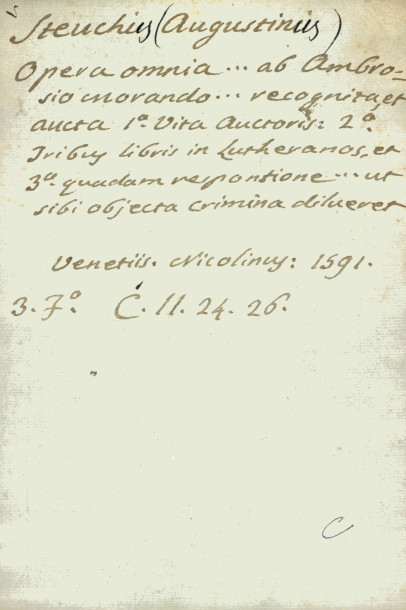 Steuchius (Augustinius)
Opera omnia... ab Ambro-
sio morando... recognita, et
aucta 1.º Vita Auctoris: 2.º
Tribus libris in Lutheranos, et
3.º quadam responsione... ut
sibi objecta crimina dilueret
Venetiis. Nicolinus: 1591.
3. Fº. C. 11. 24. 26.
C